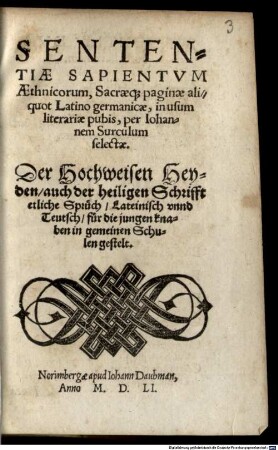 3
SENTEN⸗
TIÆ SAPIENTVM
Æthnicorum, Sacræq́; paginæ ali⸗
quot Latino germanicæ, in usum
literariæ pubis, per Iohan⸗
nem Surculum
selectæ.
Der Hochweisen Hey⸗
den/auch der heiligen Schrifft
etliche Sprüch / Lateinisch vnnd
Teutsch / für die jungen kna⸗
ben in gemeinen Schu⸗
len gestelt.
Norimbergæ apud Iohann Daubman,
Anno M. D. LI.